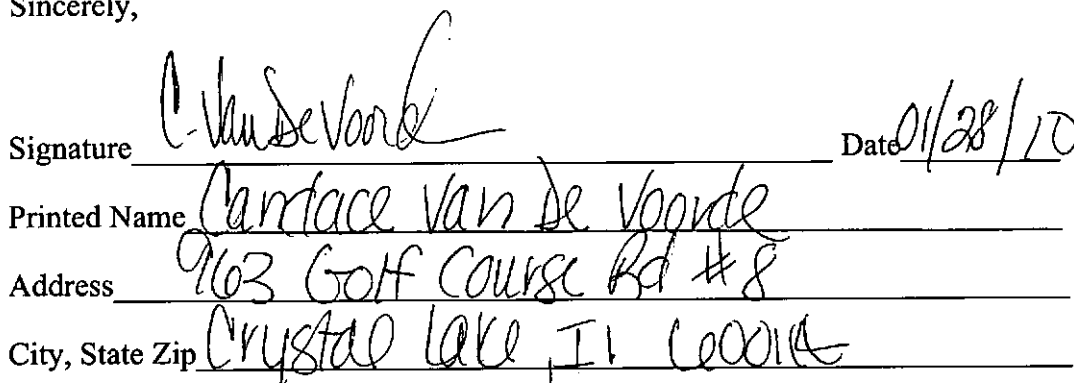 Sincerely,
Signature C. Van De Voorde Date 01/28/10
Printed Name Candace Van De Voorde
Address 963 Golf Course Rd #8
City, State Zip Crystal Lake, Il 60014